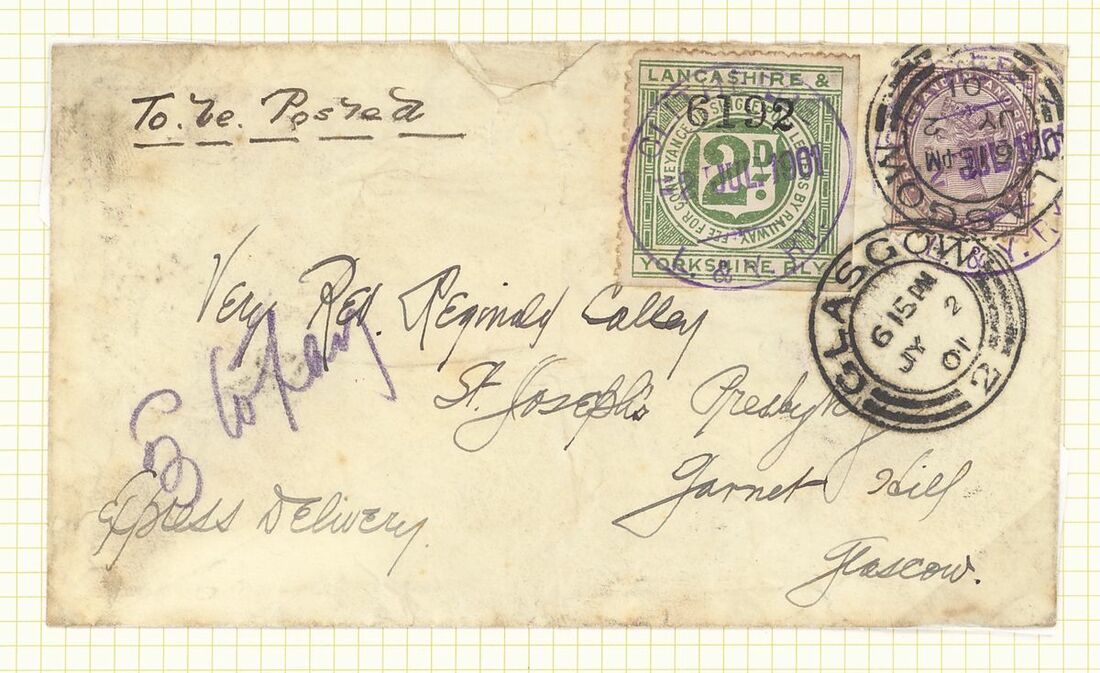 To. be. Posted
LANCASHIRE &
6192
FEE FOR CONVEYANCE OF SINGLE POST LETTERS BY RAILWAY
2D.
JUL. 1901
YORKSHIRE RLY
L. & Y. R
GLASGOW
6 15 PM
JY 2
01
JUL 190
GLASGOW
6 15 PM
JY 2
01
2
Very Rev. Reginald Colley
St. Joseph's Presbytery
Garnet Hill
Glascow.
to pay
Express Delivery.